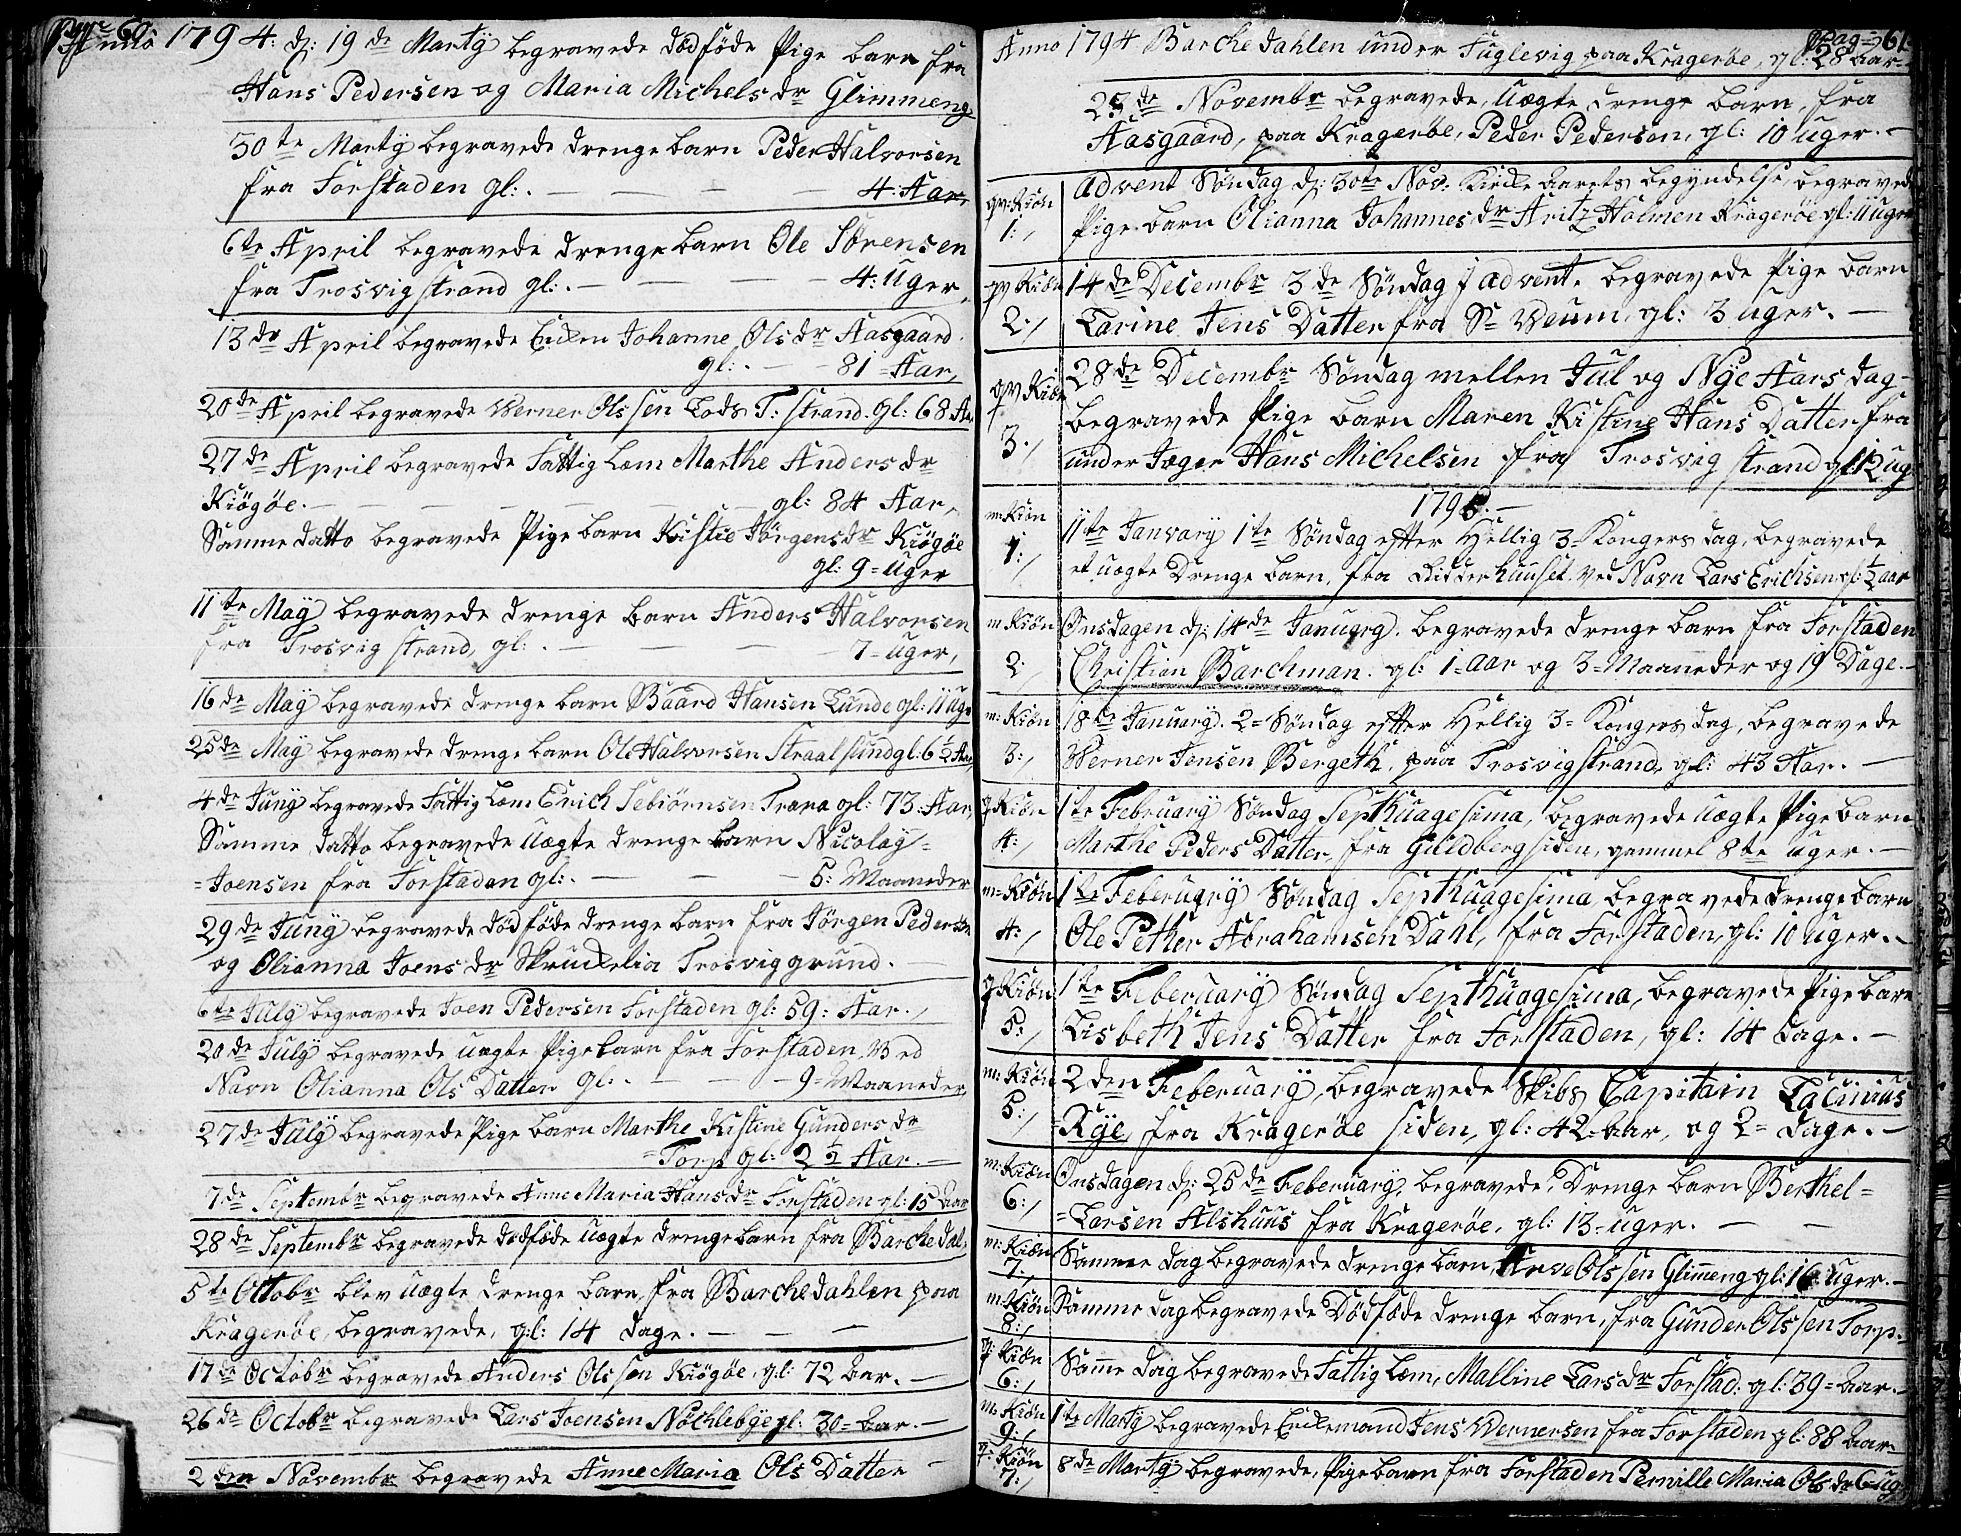 Pag: 60
Anno 1794: d: 19de Marty begravede dødføde Pige barn fra
Hans Pedersen og Maria Michels dr Glimmeng
30te Marty begravede drenge barn Peder Halvorsen
fra Forstaden gl: . — — — 4: Aar,
6te April begravede drenge barn Ole Sørensen
fra Trosvigstrand gl: . — — — 4: Uger,
13de April begravede Encken Johanne Ols dr Aasgaard.
gl: . — 81 = Aar,
20de April begravede Werner Olssen Lods T: strand. gl: 68 Aar
27de April begravede Fattig Lem Marthe Anders dr
Kiøgøe. — — — — gl: 84 Aar,
Samme datto begravede Pige barn Kistie Jørgens dr Kiøgøe
gl: 9 = Uger
11te May begravede drenge barn Anders Halvorsen
fra Trosvigstrand, gl: . — — — 7 = uger,
16de May begravede drenge barn Baard Hansen Lunde gl: 11 Ugr
25de May begravede drenge barn Ole Halvorsen Straalsund gl: 6 1/2 Aar,
4de Juny begravede Fattig Lem Erich Sebiørnsen Trara gl: 73: Aar,
Samme datto begravede Uægte drenge barn Nicolay =
= Joensen fra Forstaden gl: . — — — 5: Maaneder
29de Juny begravede dødføde drenge barn fra Jørgen Pedersen
og Olianna Joens dr Skruckelia Trosviggrund.
6te July begravede Joen Pedersen Forstaden gl: 59: Aar.,
20de July begravede uægte Pige barn fra Forstaden Ved
Navn Olianna Ols Datter gl: . — — — 9 = Maaneder,
27de July begravede Pige barn Marthe Kistine Gunders dr
= Torp gl: 2 1/2 Aar. —
7de Septembr begravede Anne Maria Hans dr Forstaden gl: 15 Aar
28de Septembr begravede dødføde Uægte drenge barn fra Barchedal:
5te Octobr blev uægte drenge barn, fra Barchedahlen paa
Kragerøe, begravede, gl: 14 dage. — — —
17de Octobr begravede Anders Olssen Kiøgøe, gl: 72 Aar. —
26de Octobr begravede Lars Joensen Nøchlebye gl: 30 = Aar. —
2den Novembr begravede Anne Maria Ols Datter —
Pag: 61
Anno 1794 Barchedahlen under Fuglevig paa Kragerøe, gl: 28 Aar. —
23de Novembr begravede, Uægte drenge barn, fra
Aasgaard, paa Kragerøe, Peder Pedersen, gl: 10 Uger. —
qv: Kiøn 1:, Advent Søndag d: 30te Nov: Kircke Aarets begyndelse, begravede
Pige barn Olianna Johannes dr Aritz Holmen Kragerøe gl: 11 Uger
qv Kiøn 2:, 14de Decembr 3de Søndag i advent. begravede Pige barn
Carine Jens Datter fra Sr Weum, gl: 3 Uger. —
qv Kiøn 3:, 28de Decembr Søndag mellem Jul og Nye Aars dag =
begravede Pige barn Maren Kistine Hans Datter fra
under Jæger Hans Michelsen fra Trosvigstrand gl: 12 ug
1795. —
m: Kiøn 1:, 11te January 1te Søndag efter Hellig 3 = Kongers dag, begravede
et uægte Drenge barn, fra Ridderhuuset. ved Navn Lars Erichsen gl: 1/2 aar
m Kiøn 2:, Onsdagen d: 14de January. begravede drenge barn fra Forstaden
Christian Barchman. gl: 1 = aar og 3 = Maaneder og 19 Dage. —
m: Kiøn 3:, 18de January. 2 = Søndag efter Hellig 3 = Kongers dag, begravede
Werner Jensen Bergeth, paa Trosvigstrand, gl: 43 Aar. —
q Kiøn 4:, 1te February Søndag Septhuagesima, begravede uægte Pige barn
Marthe Peders Datter, fra Guldbergsiden, gammel 8te uger. —
m= Kiøn 4:, 1te Feberuary Søndag Septhuagesima begravede drenge barn
Ole Pether Abrahamsen Dahl, fra Forstaden, gl: 10 Uger. —
q Kiøn 5:, 1te Feberuary Søndag Septhuagesima, begravede Pige barn
Lisbeth Jens Datter fra Forstaden, gl: 14 Dage. —
m: Kiøn 5:, 2den Feberuary, begravede Skibs Capitain Calinius
= Rye, fra Kragerøe siden, gl: 42 = Aar, og 2 = dage. —
m: Kiøn 6:, Onsdagen d: 25de Feberuary, begravede, Drenge barn Berthel =
= Larsen Alshuus fra Kragerøe, gl: 13 = uger. — —
m: Kiøn 7:, Samme dag begravede drenge barn, Arve Olssen Glimeng gl: 16: Uger. —
m: Kiøn 8:, Samme dag begravede Dødføde drenge barn, fra Gunder Olssen Torp.
q: Kiøn 6:, Same dag begravede Fattig Lem, Malline Lars dr Forstad: gl: 39 = Aar. —
m. Kiøn 9:, 1te Marty begravede Enckemand Jens Wernersen fra Forstaden gl: 88 Aar
q: Kiøn 7:, 8de Marty begravede, Pige barn fra Forstaden Pernille Maria Ols dr 6 = ug